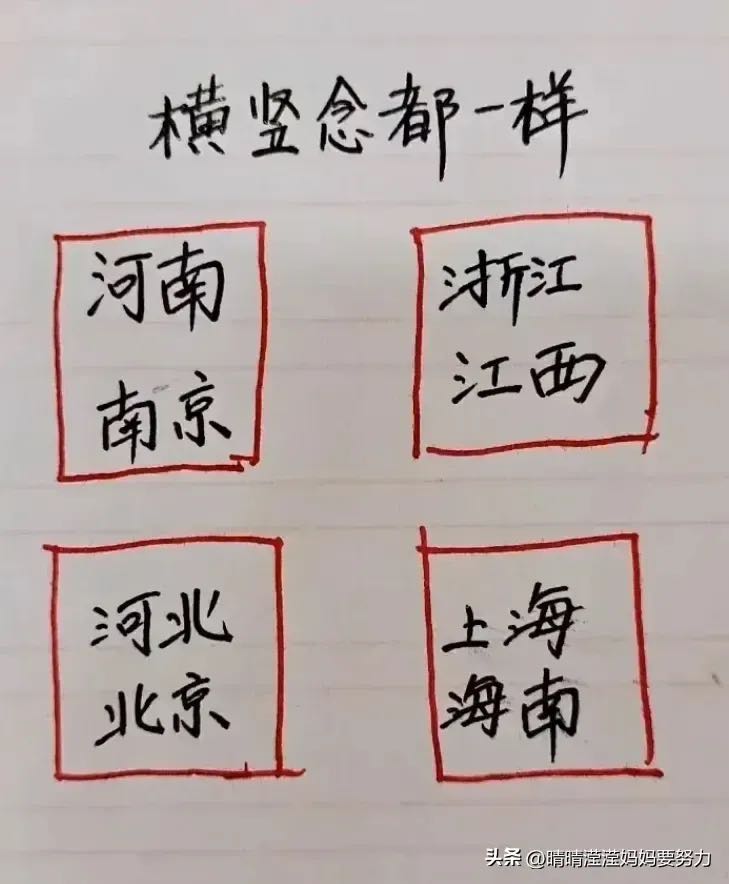 横竖念都一样
河南
南京
浙江
江西
河北
北京
上海
海南
头条 @晴晴滢滢妈妈要努力